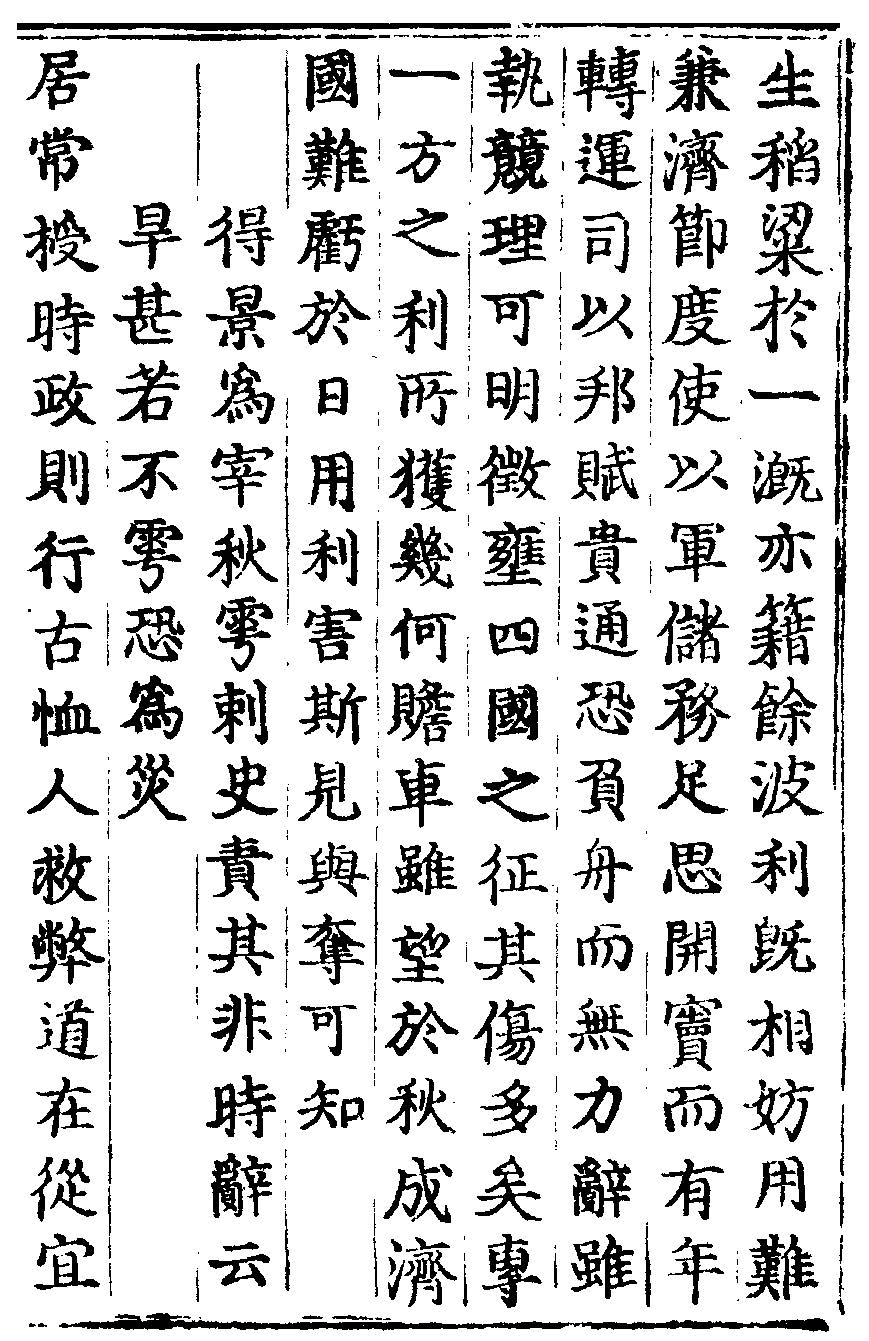 生稻粱於一溉亦籍餘波利旣相妨用難
兼濟節度使以軍儲務足思開竇而有年
轉運司以邦賦貴通恐負舟而無力辭雖
執競理可明徵壅四國之征其傷多矣專
一方之利所獲幾何贍車雖望於秋成濟
國難虧於日用利害斯見與奪可知
得景爲宰秋雩刺史責其非時辭云
旱甚若不雩恐爲災
居常授時政則行古恤人救弊道在從宜